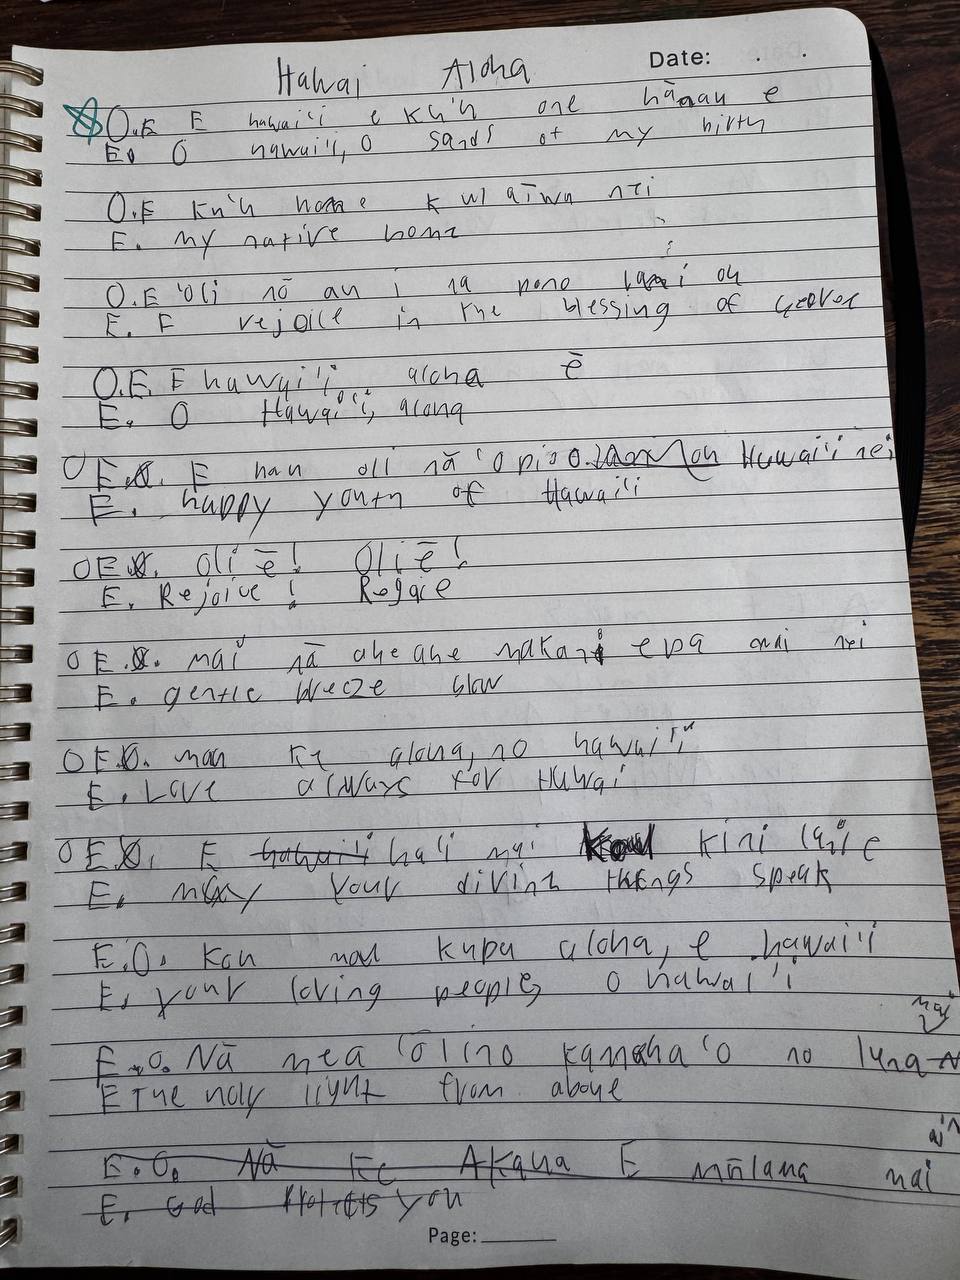 Hawai Aloha Date: . .
O.E E hawai'i e Ku'u one hānau e
E. O hawai'i, O sands of my birth
O.E Ku'u home Kulaīwa nei
E. my native home
O.E 'Oli nō au i na pono lani ou
E. I rejoice in the blessing of
O.E. E hawai'i aloha ē
E. O Hawai'i, aloha
O E. E hau oli nā 'opio o Hawai'i nei
E. happy youth of Hawai'i
O E. Oli ē! Oli ē!
E. Rejoice! Rejoice
O E. mai nā ahe ahe makani e pā mai nei
E. gentle breeze blow
O E. mau Ke aloha, no hawai'i
E. Love always for Hawai
O E. E ha'i mai kini lani e
E. may your divine things speak
E.O. Kou mau kupu aloha, e hawai'i
E. your loving people, O hawai'i
mai
E.O. Nā mea 'ōlino kamaha'o no luna
E The holy light from above
E.O. Nā Ke Akaua E mālama mai
E. God Protects you
Page: